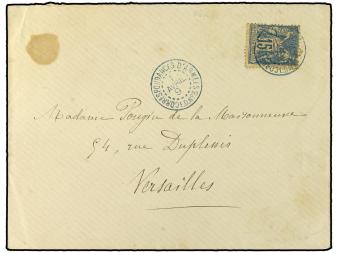 CORRESPONDANCES D'ARMEES
15
Madame Pougin de la Maisonneuve
54, rue Duplessis
Versailles